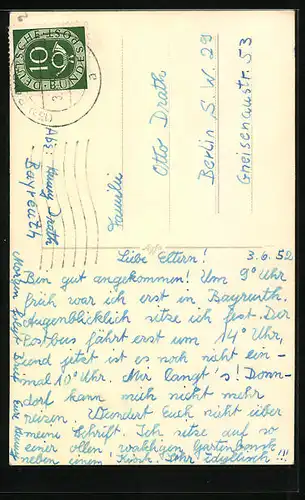 DEUTSCHE BUNDESPOST
10
Familie
Otto Drath
Berlin S W 29
Gneisenaustr. 53
Abs:
Drath
Bayreuth
Liebe Eltern! 3.6.52
Bin gut angekommen! Um 9° Uhr
früh war ich erst in Bayreuth.
Augenblicklich sitze ich fest. Der
Postbus fährt erst um 14° Uhr,
und jetzt ist es noch nicht ein-
mal 10° Uhr. Mir langt's! Donn-
dorf kann mich nicht mehr
reizen. Wundert Euch nicht über
meine Schrift. Ich sitze auf so
einer ollen wakligen Gartenbank
neben einem Kiosk. Sehr Idyllisch!!!
Morgen folgt Brief Eure